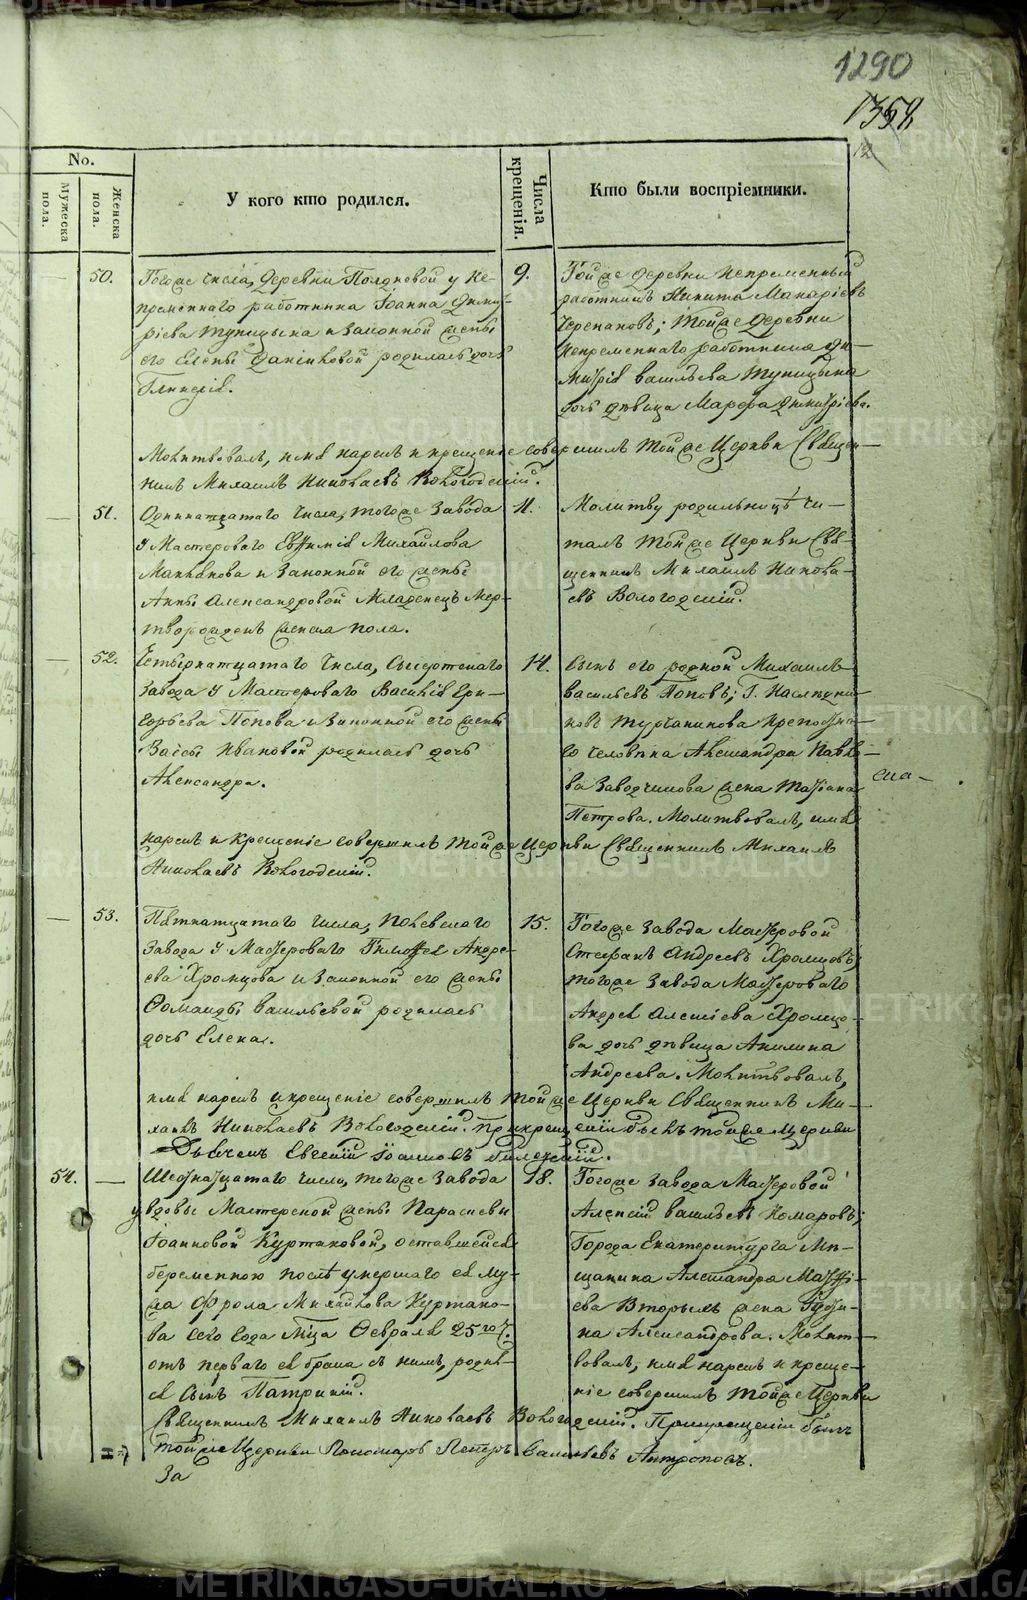 1290
1358
12
No.
Мужеска пола.
Женска пола.
У кого кто родился.
Числа крещенія.
Кто были воспріемники.
50.
Тогоже числа, деревни Полдневой у Не-
пременного работника Іоанна Дмит-
ріева Тупицына и законной жены
его Елены Даніиловой родилась дочь
Гликерія.
9.
Тойже деревни непременный
работникъ Никита Макаріевъ
Черепановъ; тойже деревни
непременнаго работника Ди-
митрія Васильева Тупицына
дочь девица Марфа Димитріева.
Молитвовалъ, имя нарекъ и крещеніе совершилъ тойже Церкви Священ-
никъ Михаилъ Николаевъ Вологодскій.
51.
Одинатцатаго числа, тогоже завода
у Мастероваго Евфимія Михайлова
и законной его жены
Анны Александровой Младенецъ Мер-
творожденъ женска пола.
11.
Молитву родильницѣ чи-
талъ тойже Церкви Свя-
щенникъ Михаилъ Никола-
евъ Вологодскій.
52.
Четырнатцатаго числа, Сысертскаго
завода у Мастероваго Василія Гри-
горьева Попова и законной его жены
Ивановой родилась дочь
Александра.
14.
Сынъ его родной Михаилъ
Васильевъ Поповъ; Г. Наследни-
ковъ Турчанинова
человека Александра Павло-
ва Заводчикова жена Татіана
Петрова. Молитвовалъ, имя
нарекъ и крещеніе совершилъ тойже Церкви Священникъ Михаилъ
Николаевъ Вологодскій.
53.
Пятнатцатаго числа, Полевскаго
завода у Мастероваго Тимофея Андре-
ева Хромцова и законной его жены
Васильевой родилась
дочь Елена.
15.
Тогоже завода Мастеровой
Стефанъ Андреевъ Хромцовъ;
тогоже завода Мастероваго
Андрея Алексіева Хромцо-
ва дочь дѣвица Акилина
Андреева. Молитвовалъ,
имя нарекъ и крещеніе совершилъ тойже Церкви Священникъ Ми-
хаилъ Николаевъ Вологодскій. При крещеніи былъ тойже Церкви
Дьячекъ Евгеній Іоанновъ
54.
Шестнатцатаго числа, тогоже завода
у вдовы Мастерской жены Параскевы
Іоанновой Куртаковой, оставшейся
беременною послѣ умершаго ея му-
жа Фрола Михайлова Куртако-
ва сего года М-ца Февраля 25го ч.
отъ перваго ея брака съ нимъ, родил-
ся сынъ Патрикій.
18.
Тогоже завода Мастеровой
Алексій Васильевъ Комаровъ;
Города Екатеринбурга Мѣ-
щанина Александра Матфі-
ева Вторыхъ жена
Александрова. Молит-
вовалъ, имя нарекъ и креще-
ніе совершилъ тойже Церкви
Священникъ Михаилъ Николаевъ Вологодскій. При крещеніи былъ
тойже Церкви Пономарь Петръ Антроповъ.
За
METRIKI.GASO-URAL.RU